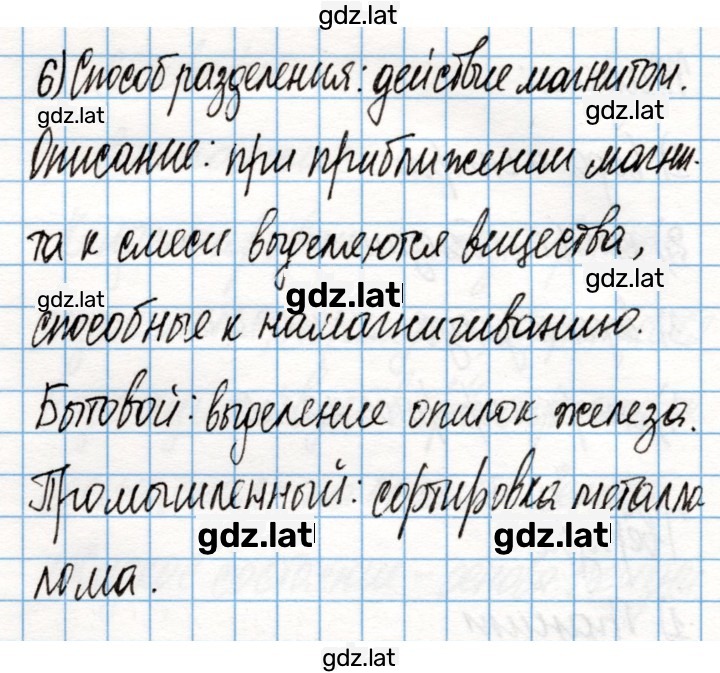 gdz.lat
6) Способ разделения: действие магнитом.
gdz.lat
gdz.lat
Описание: при приближении магни-
та к смеси выделяются вещества,
gdz.lat
gdz.lat
gdz.lat
способные к намагничиванию.
Бытовой: выделение опилок железа.
Промышленный: сортировка металло
gdz.lat
gdz.lat
лома.
gdz.lat